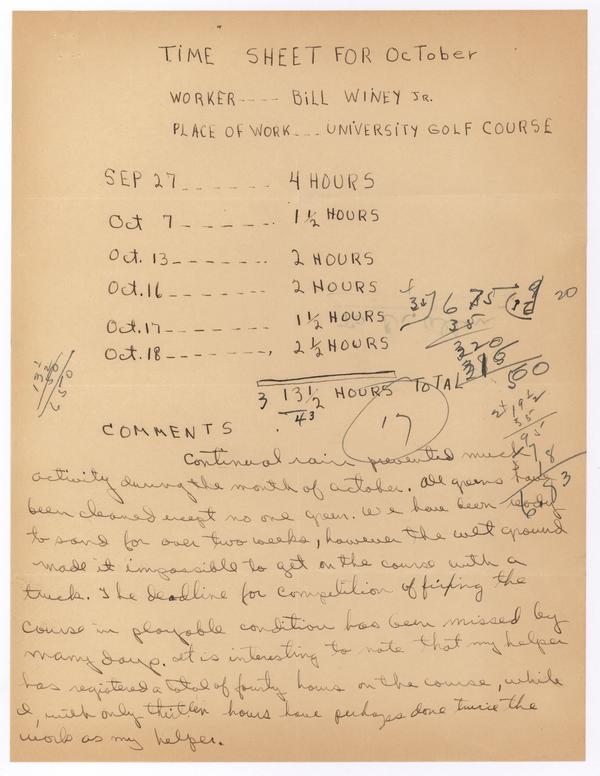 TIME SHEET FOR OcTober
WORKER---- BILL WINEY JR.
PLACE OF WORK--- UNIVERSITY GOLF COURSE
SEP 27------- 4 HOURS
Oct 7------ 1 1/2 HOURS
Oct. 13------- 2 HOURS
Oct. 16------- 2 HOURS
Oct. 17------- 1 1/2 HOURS
Oct. 18-------, 2 1/2 HOURS
20
3 13 1/2 HOURS TOTAL
43
17
COMMENTS
Continual rain prevented much
activity during the month of october. All greens have
been cleaned except no one green. We have been ready
to sand for over two weeks, however the wet ground
made it impossible to get on the course with a
truck. The deadline for competition of fixing the
course in playable condition has been missed by
many days. It is interesting to note that my helper
has registered a total of fourty hours on the course, while
I, with only thirteen hours have perhaps done twice the
work as my helper.